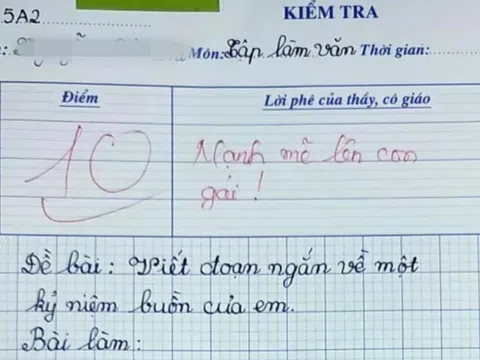 5A2
KIỂM TRA
Môn: Tập làm văn Thời gian:
Điểm
Lời phê của thầy, cô giáo
10
Mạnh mẽ lên con
gái !
Đề bài : Viết đoạn ngắn về một
kỷ niệm buồn của em.
Bài làm :